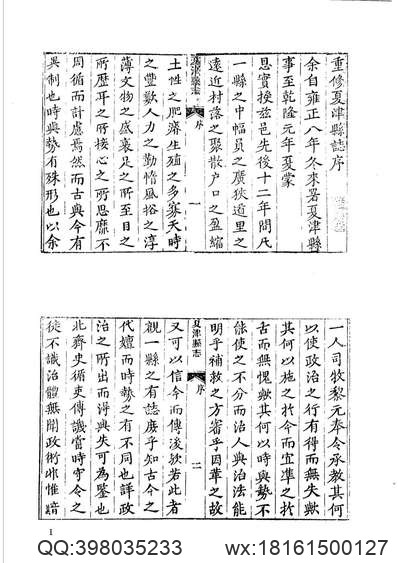 重修夏津縣誌序
余自雍正八年冬來署夏津縣
事至乾隆元年夏蒙
恩實授茲邑先後十二年間凡
一縣之中幅員之廣狹道里之
遠近村落之聚散户口之盈縮
夏津縣志 序 一
土性之肥瘠生殖之多寡天時
之豐歉人力之勤惰風俗之淳
薄文物之盛衰足之所至目之
所歷耳之所接心之所思靡不
周循而計慮焉然而古與今有
異制也時與勢有殊形也以余
一人司牧黎元奉令承教其何
以使政治之行有得而無失歟
其何以施之扵今而宜準之扵
古而無愧歟其何以時與勢不
能使之不分而治人與治法能
明乎補救之方審乎因革之故
夏津縣志 序 二
又可以信今而傳後歟若此者
觀一縣之有誌庶乎知古今之
代嬗而時勢之有不同也詳政
治之所出而得與失可為鑒也
北齊史循吏傳譏當時守令之
徒不識治體無聞政術非惟
1
QQ:398035233 wx:18161500127